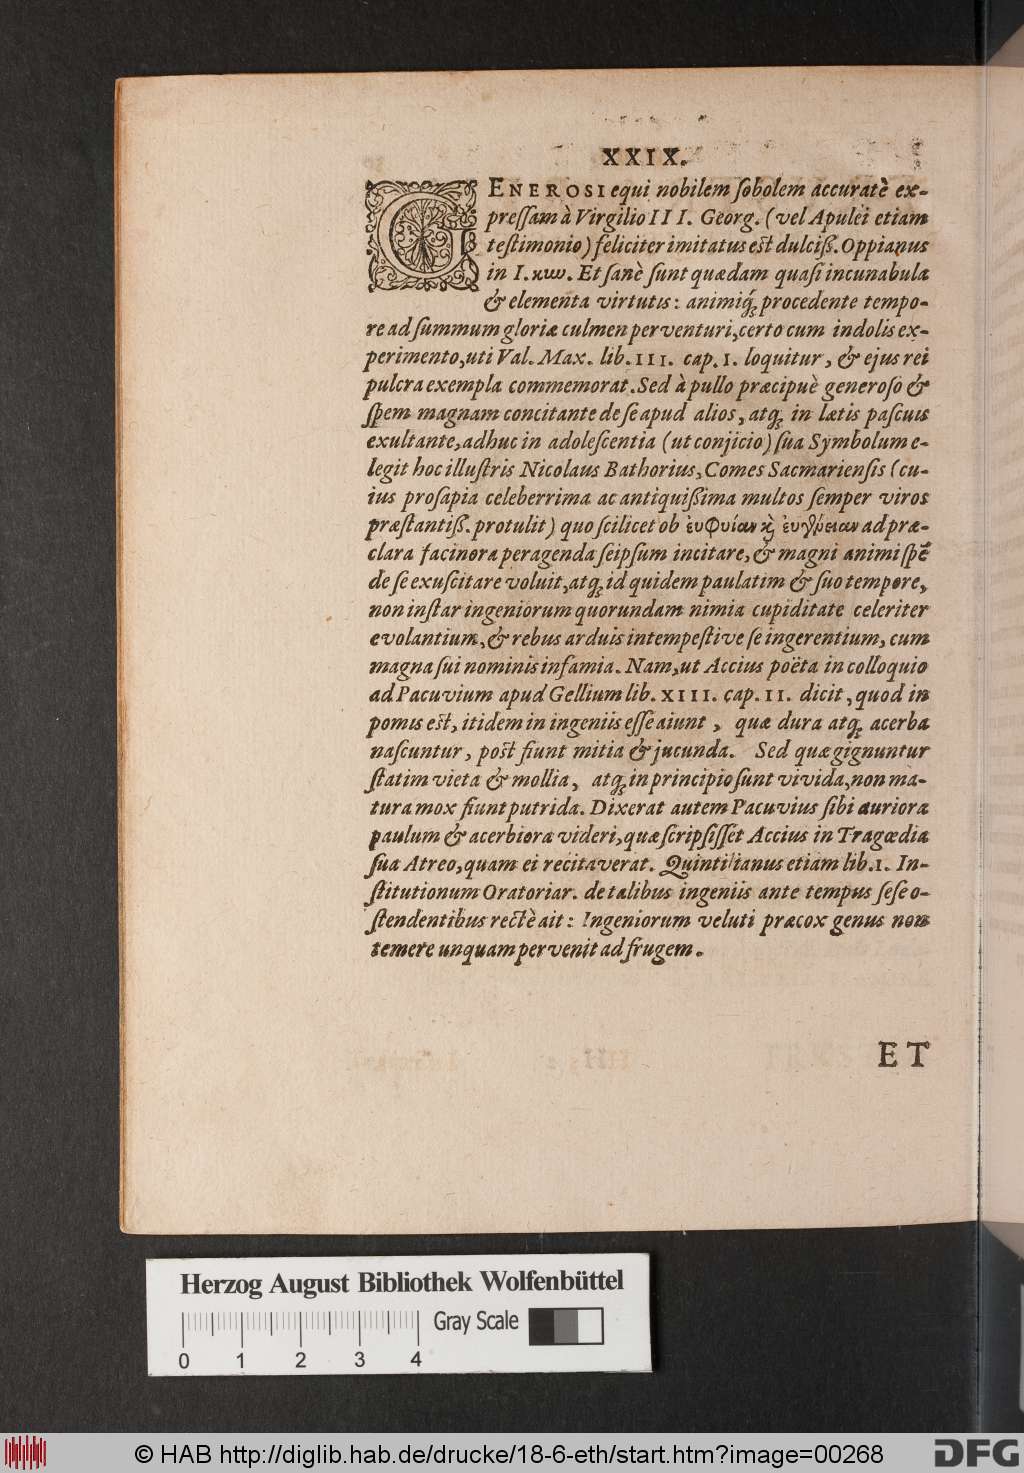 XXIX.
GENEROSI equi nobilem ſobolem accuratè ex-
preſſam à Virgilio III. Georg. (vel Apulei etiam
teſtimonio) feliciter imitatus eſt dulciß. Oppianus
in I. κυν. Et ſanè ſunt quædam quaſi incunabula
& elementa virtutis: animiq́; procedente tempo-
re ad ſummum gloriæ culmen perventuri, certo cum indolis ex-
perimento, uti Val. Max. lib. III. cap. I. loquitur, & ejus rei
pulcra exempla commemorat. Sed à pullo præcipuè generoſo &
ſpem magnam concitante de ſe apud alios, atq; in lætis paſcuis
exultante, adhuc in adoleſcentia (ut conjicio) ſua Symbolum e-
legit hoc illuſtris Nicolaus Bathorius, Comes Sacmarienſis (cu-
ius proſapia celeberrima ac antiquißima multos ſemper viros
præſtantiß. protulit) quo ſcilicet ob ἐυφυίαν κ̀ ἐυγένειαν ad præ-
clara facinora peragenda ſeipſum incitare, & magni animi ſpē
de ſe exuſcitare voluit, atq; id quidem paulatim & ſuo tempore,
non inſtar ingeniorum quorundam nimia cupiditate celeriter
evolantium, & rebus arduis intempeſtive ſe ingerentium, cum
magna ſui nominis infamia. Nam, ut Accius poëta in colloquio
ad Pacuvium apud Gellium lib. XIII. cap. II. dicit, quod in
pomis eſt, itidem in ingeniis eſſe aiunt, quæ dura atq; acerba
naſcuntur, poſt fiunt mitia & jucunda. Sed quæ gignuntur
ſtatim vieta & mollia, atq; in principio ſunt vivida, non ma-
tura mox fiunt putrida. Dixerat autem Pacuvius ſibi auriora
paulum & acerbiora videri, quæ ſcripſiſſet Accius in Tragœdia
ſua Atreo, quam ei recitaverat. Quintilianus etiam lib. I. In-
ſtitutionum Oratoriar. de talibus ingeniis ante tempus ſeſe o-
ſtendentibus rectè ait: Ingeniorum veluti præcox genus non
temere unquam pervenit ad frugem.
ET
Herzog August Bibliothek Wolfenbüttel
Gray Scale
0 1 2 3 4
© HAB http://diglib.hab.de/drucke/18-6-eth/start.htm?image=00268
DFG